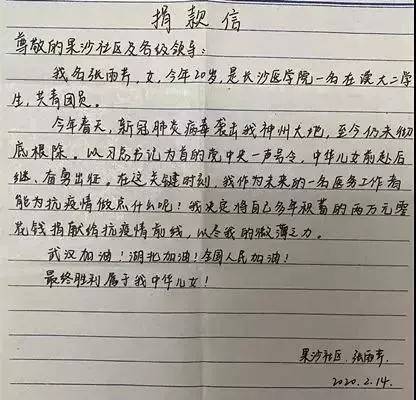 捐款信
尊敬的果沙社区及各级领导:
我名张雨芹,女,今年20岁,是长沙医学院一名在读大二学
生,共青团员。
今年春天,新冠肺炎病毒袭击我神州大地,至今仍未彻
底根除。以习总书记为首的党中央一声号令,中华儿女前赴后
继、奋勇出征。在这关键时刻,我作为未来的一名医务工作者
能为抗疫情做点什么呢!我决定将自己多年积蓄的两万元零
花钱捐献给抗疫情前线,以尽我的微薄之力。
武汉加油!湖北加油!全国人民加油!
最终胜利属于我中华儿女!
果沙社区 张雨芹
2020.2.14.